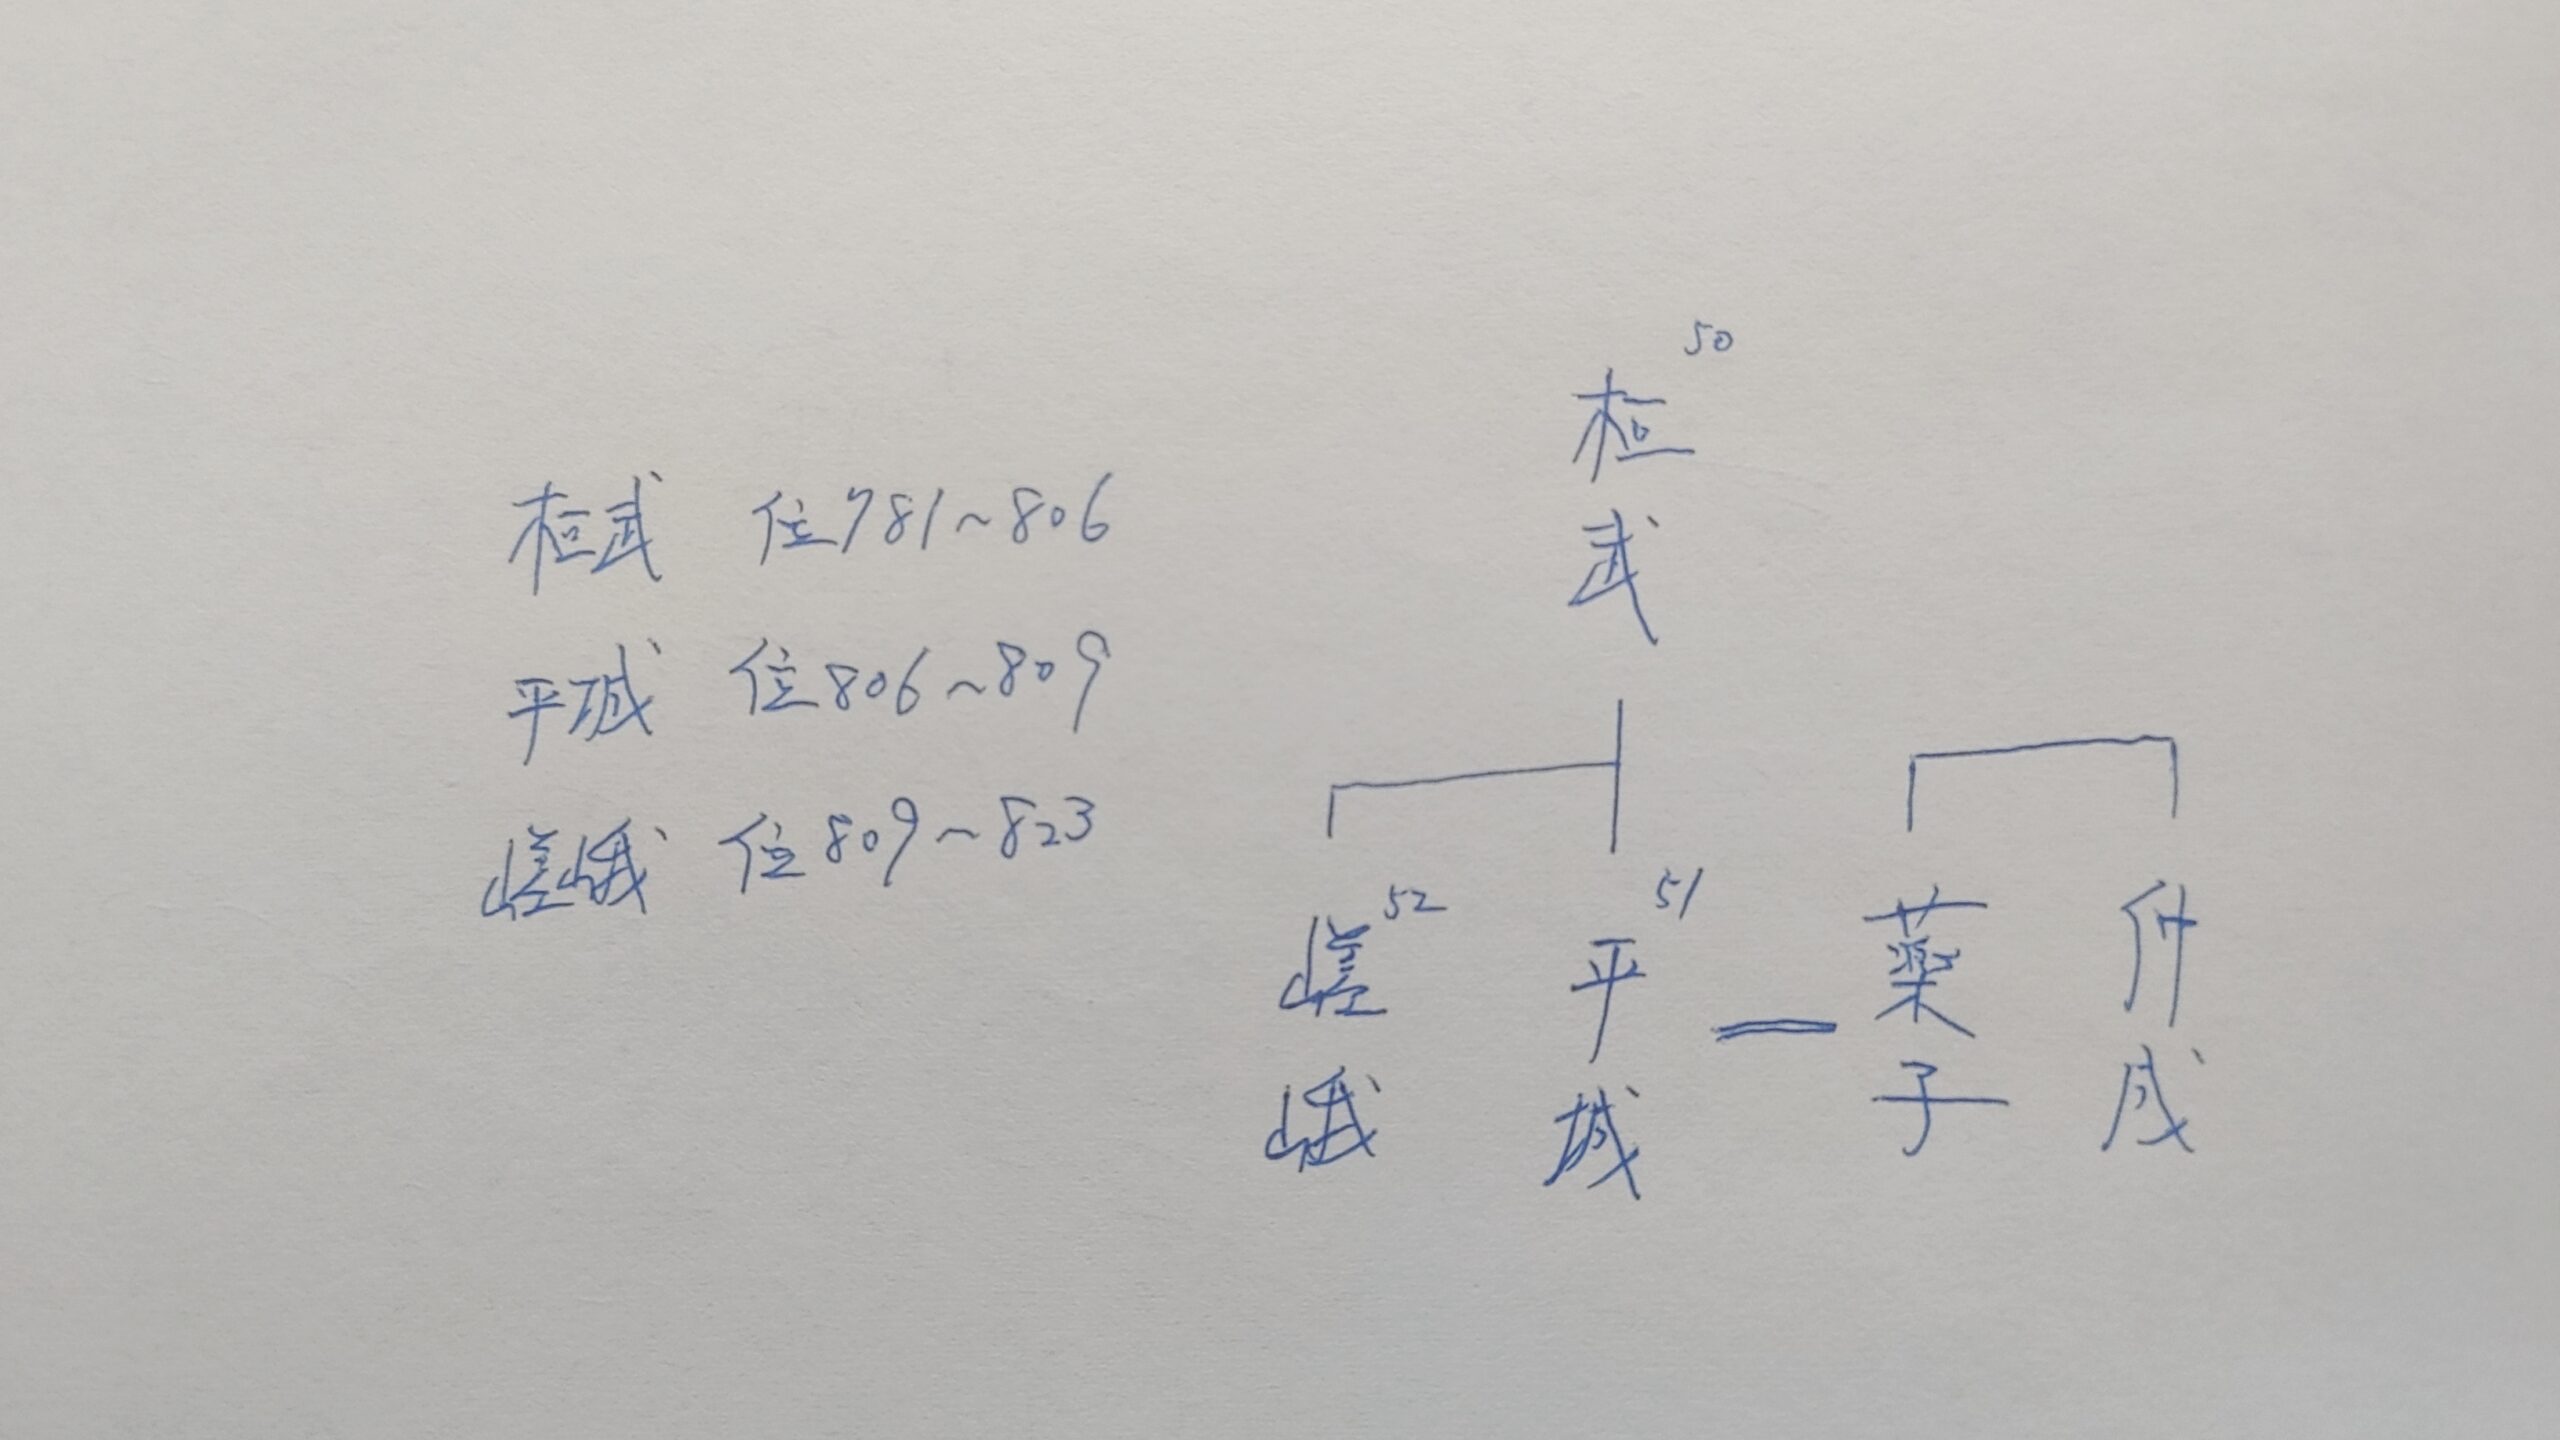 桓武 位781~806
平城 位806~809
嵯峨 位809~823
50
桓武
52
嵯峨
51
平城
薬子
仲成